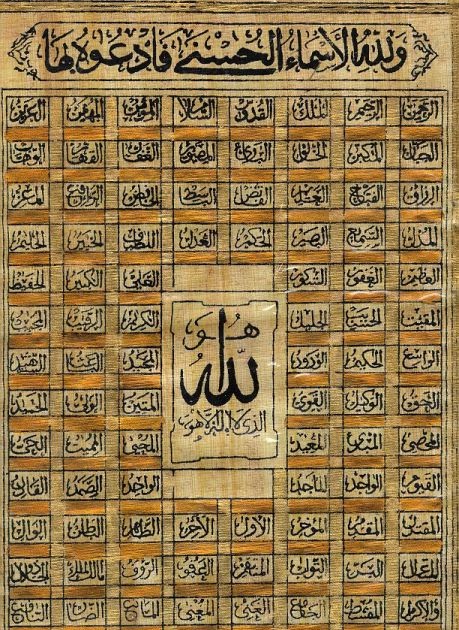 ولله الأسماء الحسنى فادعوه بها
الرحمن الرحيم الملك القدوس السلام المؤمن المهيمن العزيز
الجبار المتكبر الخالق البارئ المصور الغفار القهار الوهاب
الرزاق الفتاح العليم القابض الباسط الخافض الرافع المعز
المذل السميع البصير الحكم العدل اللطيف الخبير الحليم
العظيم الغفور الشكور العلي الكبير الحفيظ
المقيت الحسيب الجليل الكريم الرقيب المجيب
الواسع الحكيم الودود المجيد الباعث الشهيد
الحق الوكيل القوي المتين الولي الحميد
المحصي المبدئ المعيد المحيي المميت الحي
القيوم الواجد الماجد الواحد الصمد القادر
هو
الله
الذي لا إله إلا هو
المقتدر المقدم المؤخر الأول الآخر الظاهر الباطن الوالي
المتعال البر التواب المنتقم العفو الرؤف مالك الملك ذو الجلال
والإكرام المقسط الجامع الغني المغني المانع الضار النافع